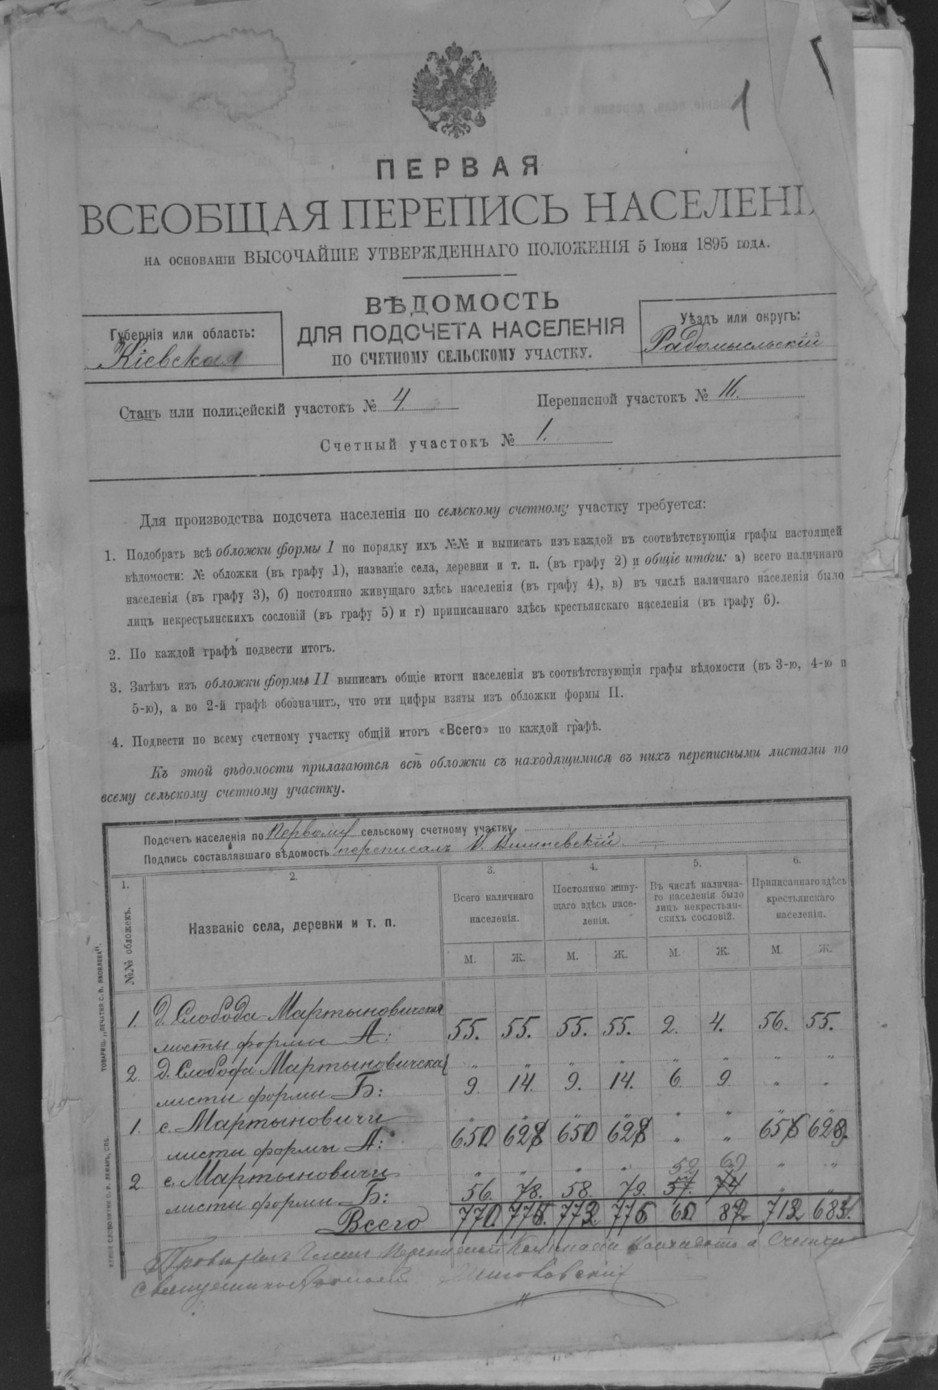 1
ПЕРВАЯ
ВСЕОБЩАЯ ПЕРЕПИСЬ НАСЕЛЕНІ
НА ОСНОВАНІИ ВЫСОЧАЙШЕ УТВЕРЖДЕННАГО ПОЛОЖЕНІЯ 5 Іюня 1895 ГОДА.
ВѢДОМОСТЬ
ДЛЯ ПОДСЧЕТА НАСЕЛЕНІЯ
ПО СЧЕТНОМУ СЕЛЬСКОМУ УЧАСТКУ.
Губернія или область:
Кіевская
Уѣздъ или округъ:
Радомысльскій
Станъ или полицейскій участокъ № 4.
Переписной участокъ № 16.
Счетный участокъ № 1.
Для производства подсчета населенія по сельскому счетному участку требуется:
1. Подобрать всѣ обложки формы I по порядку ихъ №№ и выписать изъ каждой въ соотвѣтствующія графы настоящей
вѣдомости: № обложки (въ графу 1), названіе села, деревни и т. п. (въ графу 2) и общіе итоги: а) всего наличнаго
населенія (въ графу 3), б) постоянно живущаго здѣсь населенія (въ графу 4), в) въ числѣ наличнаго населенія было
лицъ некрестьянскихъ сословій (въ графу 5) и г) приписаннаго здѣсь крестьянскаго населенія (въ графу 6).
2. По каждой графѣ подвести итогъ.
3. Затѣмъ изъ обложки формы II выписать общіе итоги населенія въ соотвѣтствующія графы вѣдомости (въ 3-ю, 4-ю и
5-ю), а во 2-й графѣ обозначить, что эти цифры взяты изъ обложки формы II.
4. Подвести по всему счетному участку общій итогъ «Всего» по каждой графѣ.
Къ этой вѣдомости прилагаются всѣ обложки съ находящимися въ нихъ переписными листами по
всему сельскому счетному участку.
Подсчетъ населенія по первому сельскому счетному участку
Подпись составлявшаго вѣдомость переписалъ
1. 2. 3. 4. 5. 6.
№№ обложекъ.
Названіе села, деревни и т. п.
Всего наличнаго населенія.
Постоянно живущаго здѣсь населенія.
Въ числѣ наличнаго населенія было лицъ некрестьянскихъ сословій.
Приписаннаго здѣсь крестьянскаго населенія.
М. Ж. М. Ж. М. Ж. М. Ж.
1. д. Слобода Мартыновичская
листы формы А: 55. 55. 55. 55. 2. 4. 56. 55.
2 д. Слобода Мартыновичская
листы формы Б: 9. 14. 9. 14. 6. 9.
1. с. Мартыновичи
листы формы А: 650 628 650 628 656 628.
52 69
2. с. Мартыновичи
листы формы Б: 56. 78. 58. 79. 57. 74
Всего 770. 775. 772 776 60. 82 712 683.